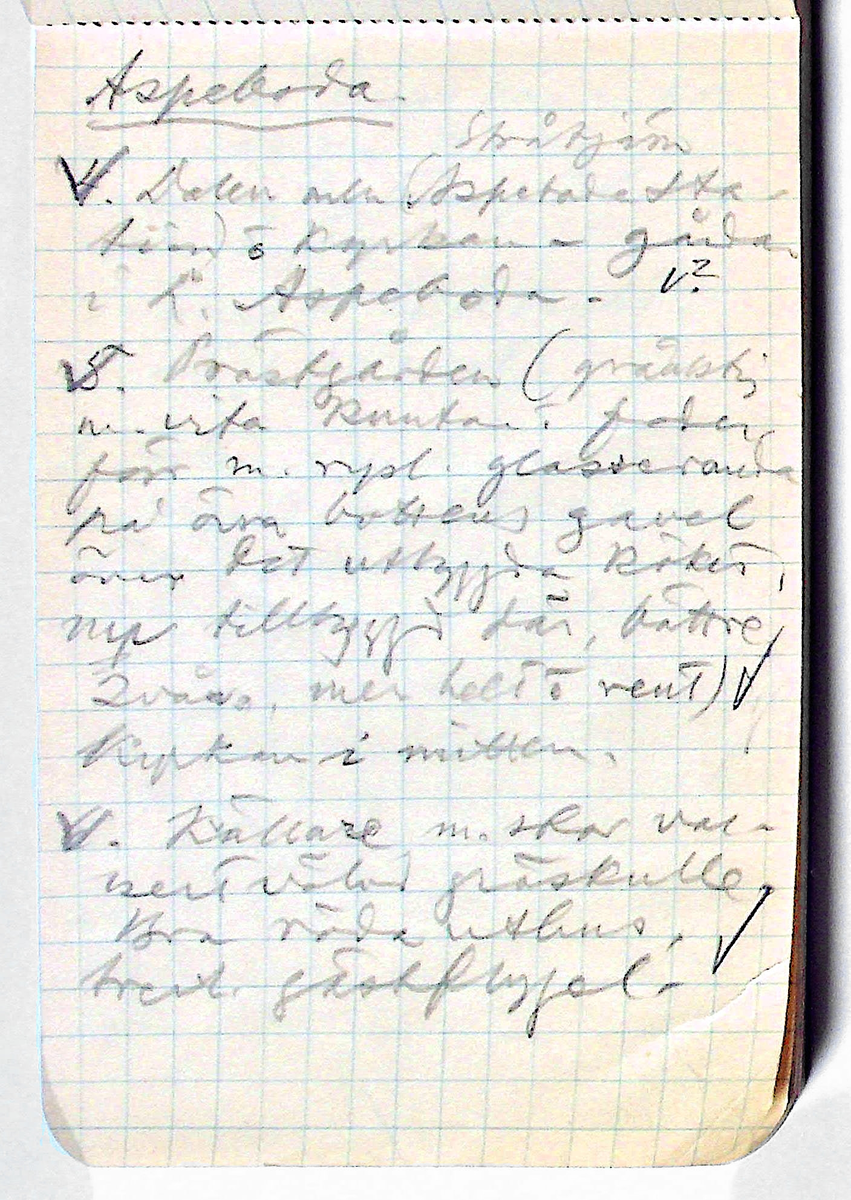 Aspeboda.
Stråtjärn
4. Dalen mln (Aspeboda sta-
tion) o kyrkan - gårdar
i L. Aspeboda. V?
5. Prästgården (gråaktig
m. vita knutar i faden,
förr m. rysl. glasveranda
på övra bottens gavel
över det utbyggda köket,
ny tillbyggd där, bättre
2 våns, mer helt o rent)
Kyrkan i mitten.
Källare m. stor vac-
kert välvd gräskulle,
Bra röda uthus,
trevl. gästflygel.